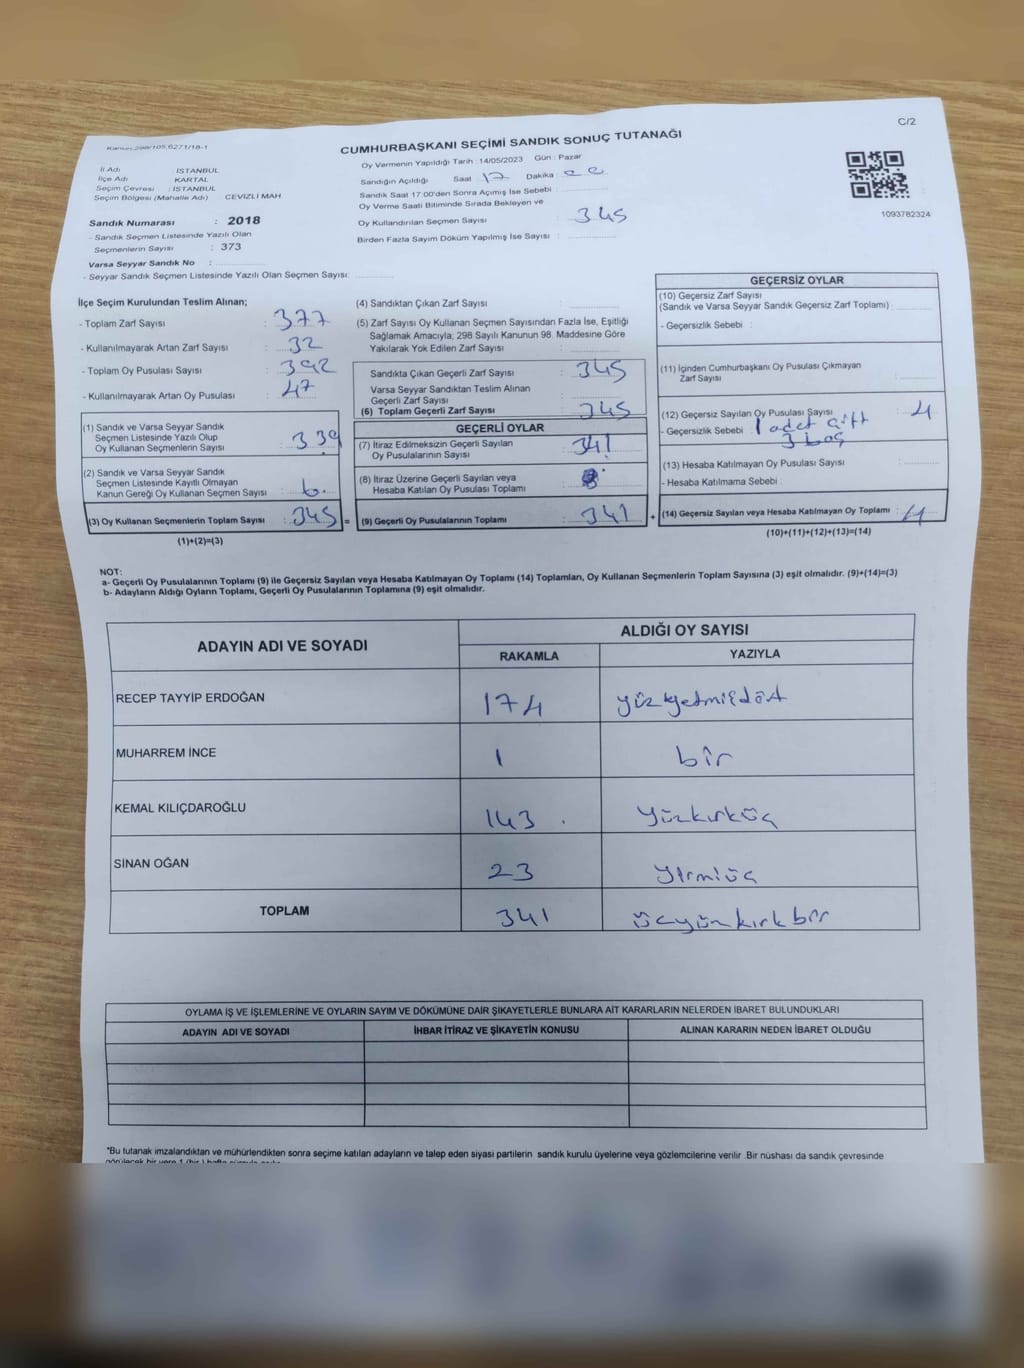 C/2
Kanun:298/105,6271/18-1
CUMHURBAŞKANI SEÇİMİ SANDIK SONUÇ TUTANAĞI
İl Adı : İSTANBUL
İlçe Adı : KARTAL
Seçim Çevresi : İSTANBUL
Seçim Bölgesi (Mahalle Adı) CEVİZLİ MAH
Sandık Numarası : 2018
- Sandık Seçmen Listesinde Yazılı Olan
Seçmenlerin Sayısı : 373
Varsa Seyyar Sandık No :
- Seyyar Sandık Seçmen Listesinde Yazılı Olan Seçmen Sayısı:
Oy Vermenin Yapıldığı Tarih : 14/05/2023 Gün : Pazar
Sandığın Açıldığı Saat 17 Dakika
Sandık Saat 17:00'den Sonra Açımış İse Sebebi :
Oy Verme Saati Bitiminde Sırada Bekleyen ve
Oy Kullandırılan Seçmen Sayısı : 345
Birden Fazla Sayım Döküm Yapılmış İse Sayısı :
1093782324
İlçe Seçim Kurulundan Teslim Alınan;
- Toplam Zarf Sayısı : 377
- Kullanılmayarak Artan Zarf Sayısı : 32
- Toplam Oy Pusulası Sayısı : 392
- Kullanılmayarak Artan Oy Pusulası : 47
(1) Sandık ve Varsa Seyyar Sandık
Seçmen Listesinde Yazılı Olup
Oy Kullanan Seçmenlerin Sayısı : 339
(2) Sandık ve Varsa Seyyar Sandık
Seçmen Listesinde Kayıtlı Olmayan
Kanun Gereği Oy Kullanan Seçmen Sayısı : 6
(3) Oy Kullanan Seçmenlerin Toplam Sayısı : 345 =
(1)+(2)=(3)
(4) Sandıktan Çıkan Zarf Sayısı :
(5) Zarf Sayısı Oy Kullanan Seçmen Sayısından Fazla İse, Eşitliği
Sağlamak Amacıyla; 298 Sayılı Kanunun 98. Maddesine Göre
Yakılarak Yok Edilen Zarf Sayısı :
Sandıkta Çıkan Geçerli Zarf Sayısı : 345
Varsa Seyyar Sandıktan Teslim Alınan
Geçerli Zarf Sayısı :
(6) Toplam Geçerli Zarf Sayısı : 345
GEÇERLİ OYLAR
(7) İtiraz Edilmeksizin Geçerli Sayılan
Oy Pusulalarının Sayısı : 341
(8) İtiraz Üzerine Geçerli Sayılan veya
Hesaba Katılan Oy Pusulası Toplamı :
(9) Geçerli Oy Pusulalarının Toplamı : 341 +
GEÇERSİZ OYLAR
(10) Geçersiz Zarf Sayısı
(Sandık ve Varsa Seyyar Sandık Geçersiz Zarf Toplamı) :
- Geçersizlik Sebebi :
(11) İçinden Cumhurbaşkanı Oy Pusulası Çıkmayan
Zarf Sayısı :
(12) Geçersiz Sayılan Oy Pusulası Sayısı : 4
- Geçersizlik Sebebi : 1 adet çift
3 boş
(13) Hesaba Katılmayan Oy Pusulası Sayısı :
- Hesaba Katılmama Sebebi :
(14) Geçersiz Sayılan veya Hesaba Katılmayan Oy Toplamı : 4
(10)+(11)+(12)+(13)=(14)
NOT:
a- Geçerli Oy Pusulalarının Toplamı (9) ile Geçersiz Sayılan veya Hesaba Katılmayan Oy Toplamı (14) Toplamları, Oy Kullanan Seçmenlerin Toplam Sayısına (3) eşit olmalıdır. (9)+(14)=(3)
b- Adayların Aldığı Oyların Toplamı, Geçerli Oy Pusulalarının Toplamına (9) eşit olmalıdır.
ADAYIN ADI VE SOYADI ALDIĞI OY SAYISI
RAKAMLA YAZIYLA
RECEP TAYYİP ERDOĞAN 174 yüzyetmişdört
MUHARREM İNCE 1 bir
KEMAL KILIÇDAROĞLU 143 yüzkırküç
SİNAN OĞAN 23 yirmiüç
TOPLAM 341 üçyüzkırkbir
OYLAMA İŞ VE İŞLEMLERİNE VE OYLARIN SAYIM VE DÖKÜMÜNE DAİR ŞİKAYETLERLE BUNLARA AİT KARARLARIN NELERDEN İBARET BULUNDUKLARI
ADAYIN ADI VE SOYADI İHBAR İTİRAZ VE ŞİKAYETİN KONUSU ALINAN KARARIN NEDEN İBARET OLDUĞU
*Bu tutanak imzalandıktan ve mühürlendikten sonra seçime katılan adayların ve talep eden siyasi partilerin sandık kurulu üyelerine veya gözlemcilerine verilir .Bir nüshası da sandık çevresinde